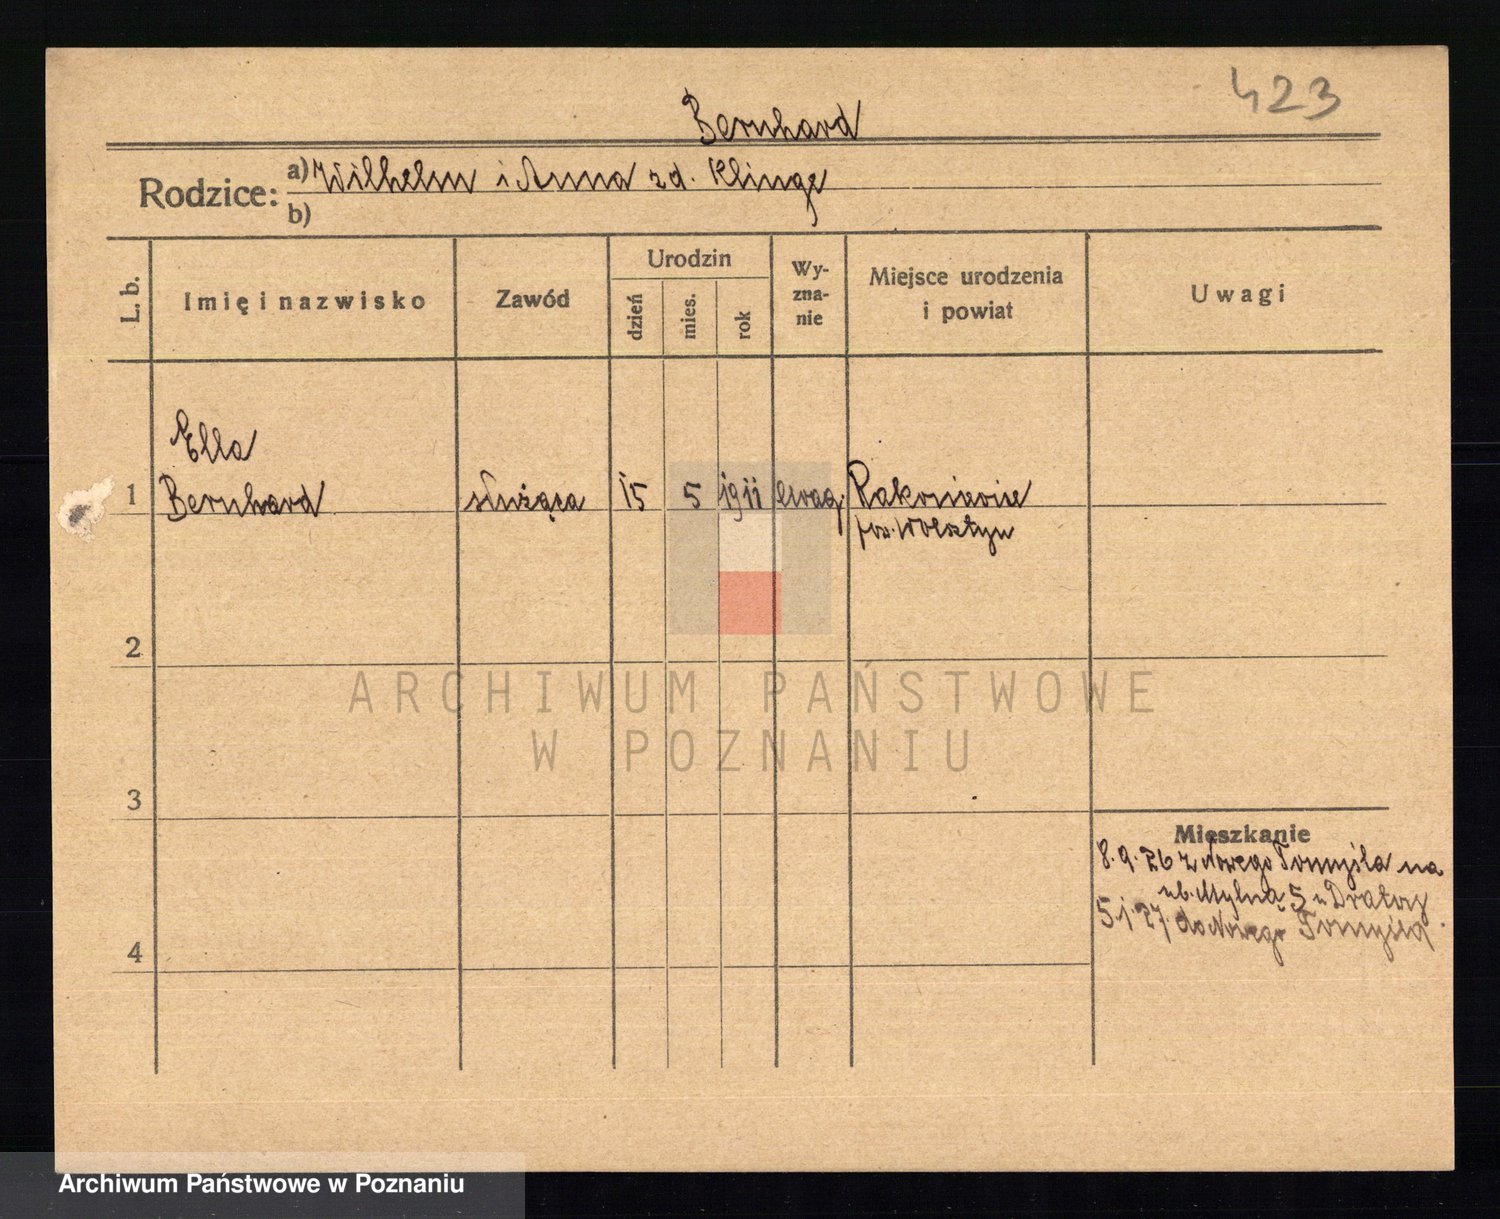 423
Bernhard
Rodzice: a) Wilhelm i Anna zd. Klinge
b)
L. b. Imię i nazwisko Zawód Urodzin dzień mies. rok Wy-zna-nie Miejsce urodzenia i powiat Uwagi
Ella
1 Bernhard służąca 15 5 1911 ewag. Rakoniewice
pow. Wolsztyn
2
ARCHIWUM PAŃSTWOWE
W POZNANIU
3
Mieszkanie
8.9.26 z Nowego Tomyśla na
ul. Mylną 5 u Dratwy
5.1.27. do Nowego Tomyśla
4
Archiwum Państwowe w Poznaniu